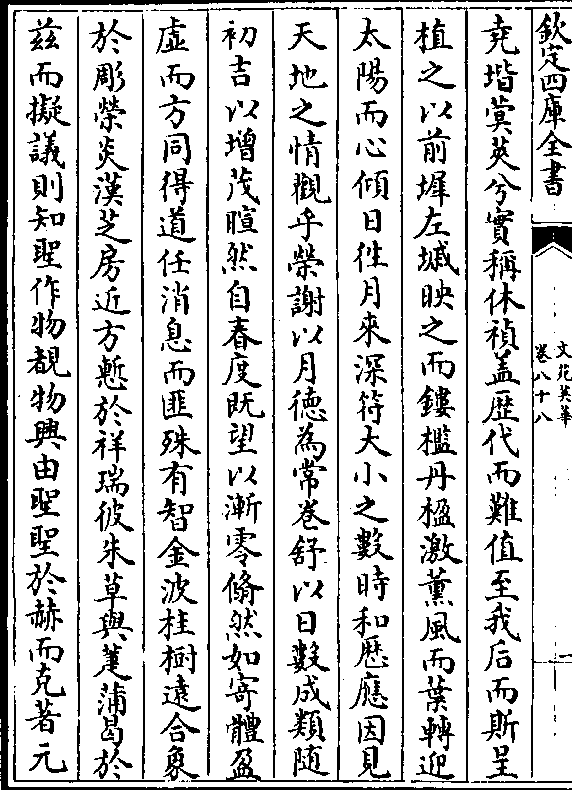 欽定四庫全書
文苑英華
卷八十八
一
堯堦蓂莢兮實稱休禎蓋歴代而難值至我后而斯呈
植之以前墀左墄映之而鏤檻丹楹激薰風而葉轉迎
太陽而心傾日往月來深符大小之數時和厯應因見
天地之情觀乎榮謝以月德為常卷舒以日數成類随
初吉以增茂暄然自春度既望以漸零翛然如寄體盈
虛而方同得道任消息而匪殊有智金波桂樹遠合象
於彫榮炎漢芝房近方慙於祥瑞彼朱草與萐蒲曷於
兹而擬議則知聖作物覩物興由聖聖於赫而克著元